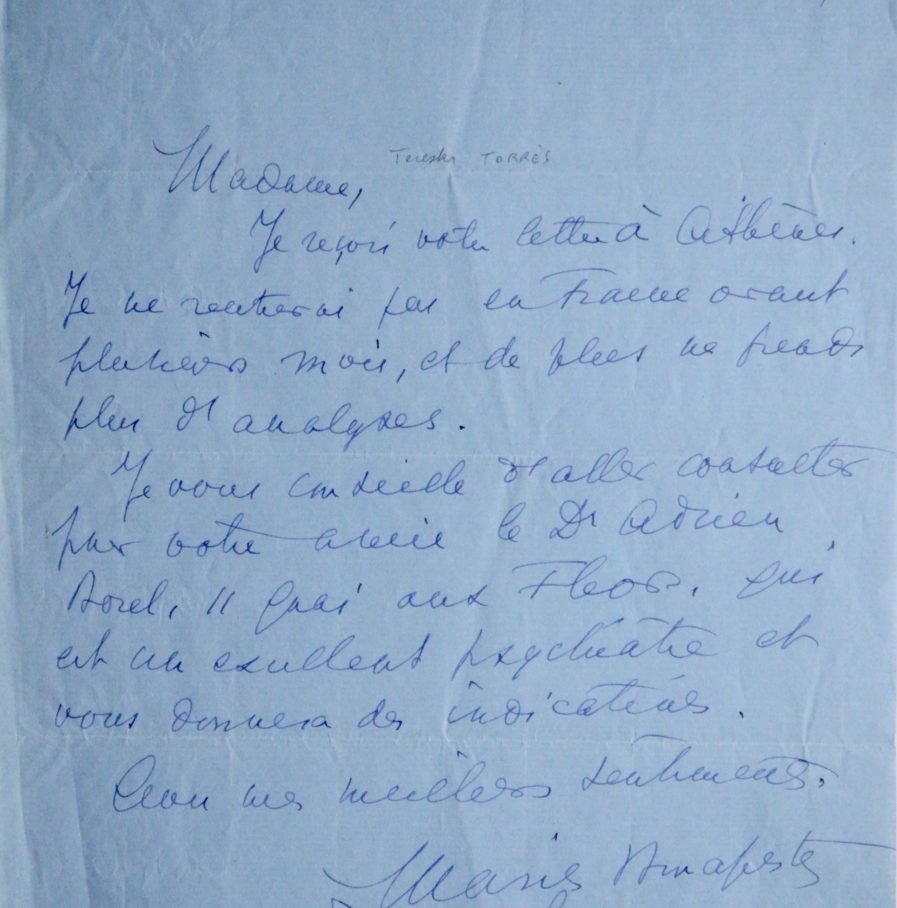 Tereska TORRÈS
Madame,
Je reçois votre lettre à Athènes.
Je ne rentrerai pas en France avant
plusieurs mois, et de plus ne prends
plus d'analyses.
Je vous conseille d'aller consulter
pour votre amie le Dr Adrien
Borel, 11 quai aux Fleurs, qui
est un excellent psychiatre et
vous donnera des indications.
Avec mes meilleurs sentiments.
Marie Bonaparte